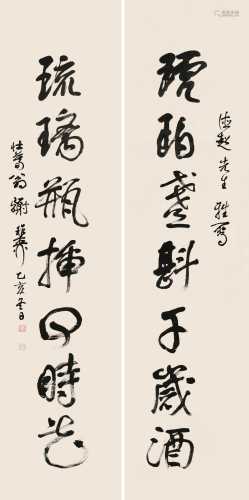 德超先生雅屬
琥珀盞斟千歲酒
琉璃瓶插四時花
壯暮翁謝稚柳乙亥冬日